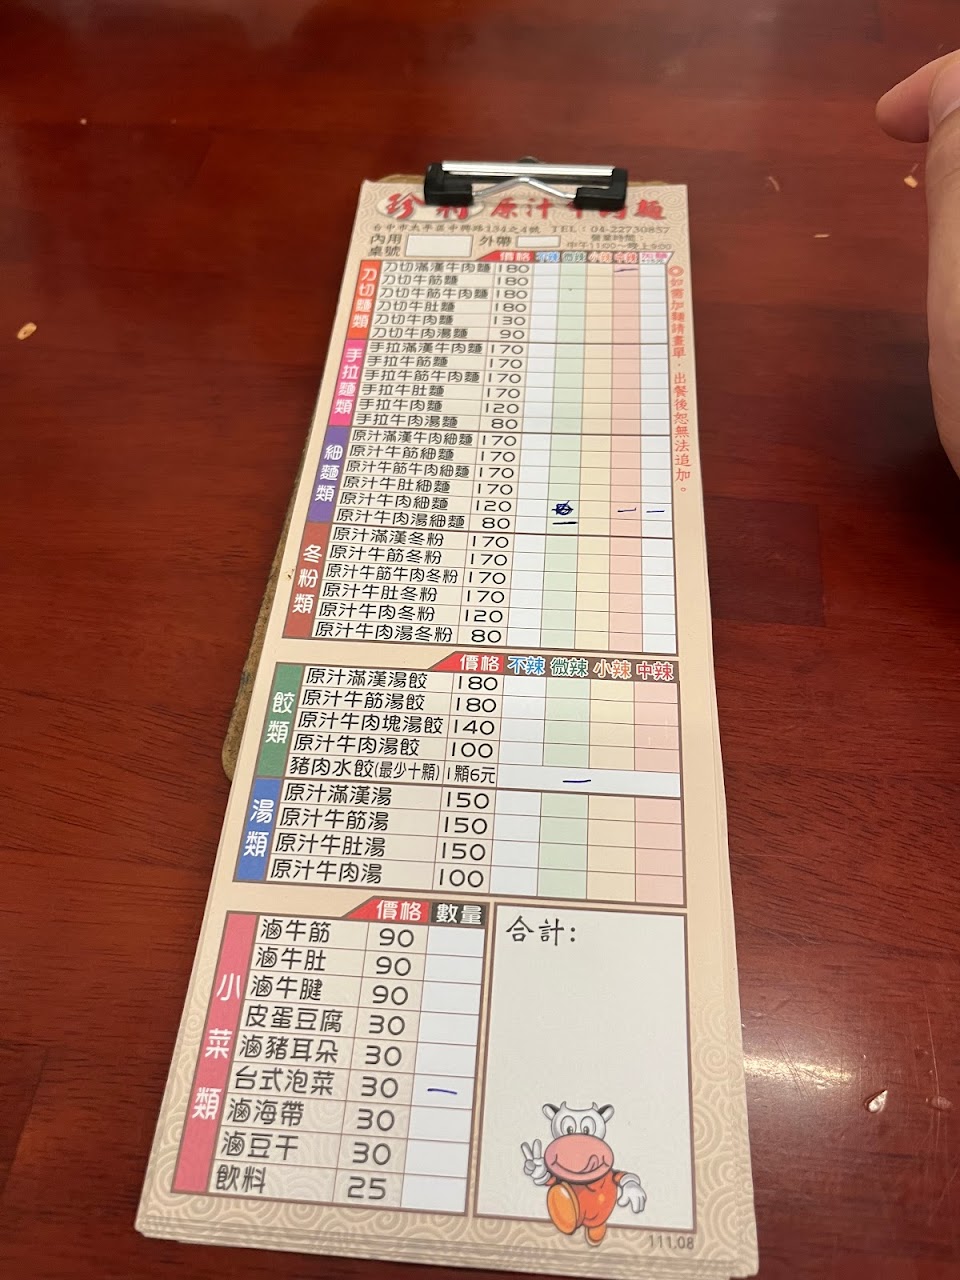 珍 原汁牛肉麵
台中市太平區中興路134之4號 TEL:04-22730857
內用桌號 外帶 營業時間:中午11:00~晚上9:00
價格 不辣 微辣 小辣 中辣 加麵
刀切麵類
刀切滿漢牛肉麵 180
刀切牛筋麵 180
刀切牛筋牛肉麵 180
刀切牛肚麵 180
刀切牛肉麵 130
刀切牛肉湯麵 90
手拉麵類
手拉滿漢牛肉麵 170
手拉牛筋麵 170
手拉牛筋牛肉麵 170
手拉牛肚麵 170
手拉牛肉麵 120
手拉牛肉湯麵 80
細麵類
原汁滿漢牛肉細麵 170
原汁牛筋細麵 170
原汁牛筋牛肉細麵 170
原汁牛肚細麵 170
原汁牛肉細麵 120
原汁牛肉湯細麵 80
冬粉類
原汁滿漢冬粉 170
原汁牛筋冬粉 170
原汁牛筋牛肉冬粉 170
原汁牛肚冬粉 170
原汁牛肉冬粉 120
原汁牛肉湯冬粉 80
如需加麵請畫單,出餐後恕無法追加。
價格 不辣 微辣 小辣 中辣
餃類
原汁滿漢湯餃 180
原汁牛筋湯餃 180
原汁牛肉塊湯餃 140
原汁牛肉湯餃 100
豬肉水餃(最少十顆) 1顆6元
湯類
原汁滿漢湯 150
原汁牛筋湯 150
原汁牛肚湯 150
原汁牛肉湯 100
價格 數量
小菜類
滷牛筋 90
滷牛肚 90
滷牛腱 90
皮蛋豆腐 30
滷豬耳朵 30
台式泡菜 30
滷海帶 30
滷豆干 30
飲料 25
合計:
111.08